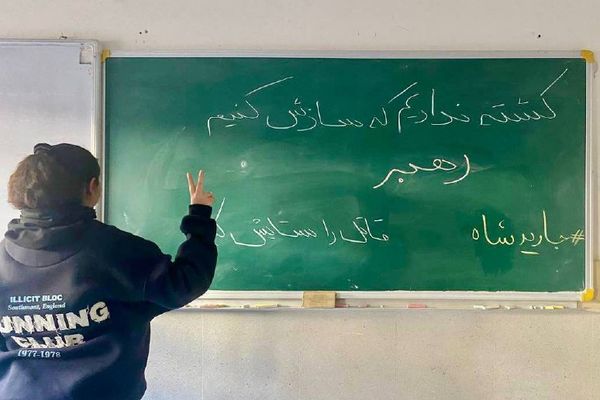 کشته ندادیم که سازش کنیم
رهبر
قاتل را ستایش
#جاویدشاه
ILLICIT BLOC
Southmont, England
UNNING
CLUB
1977-1978